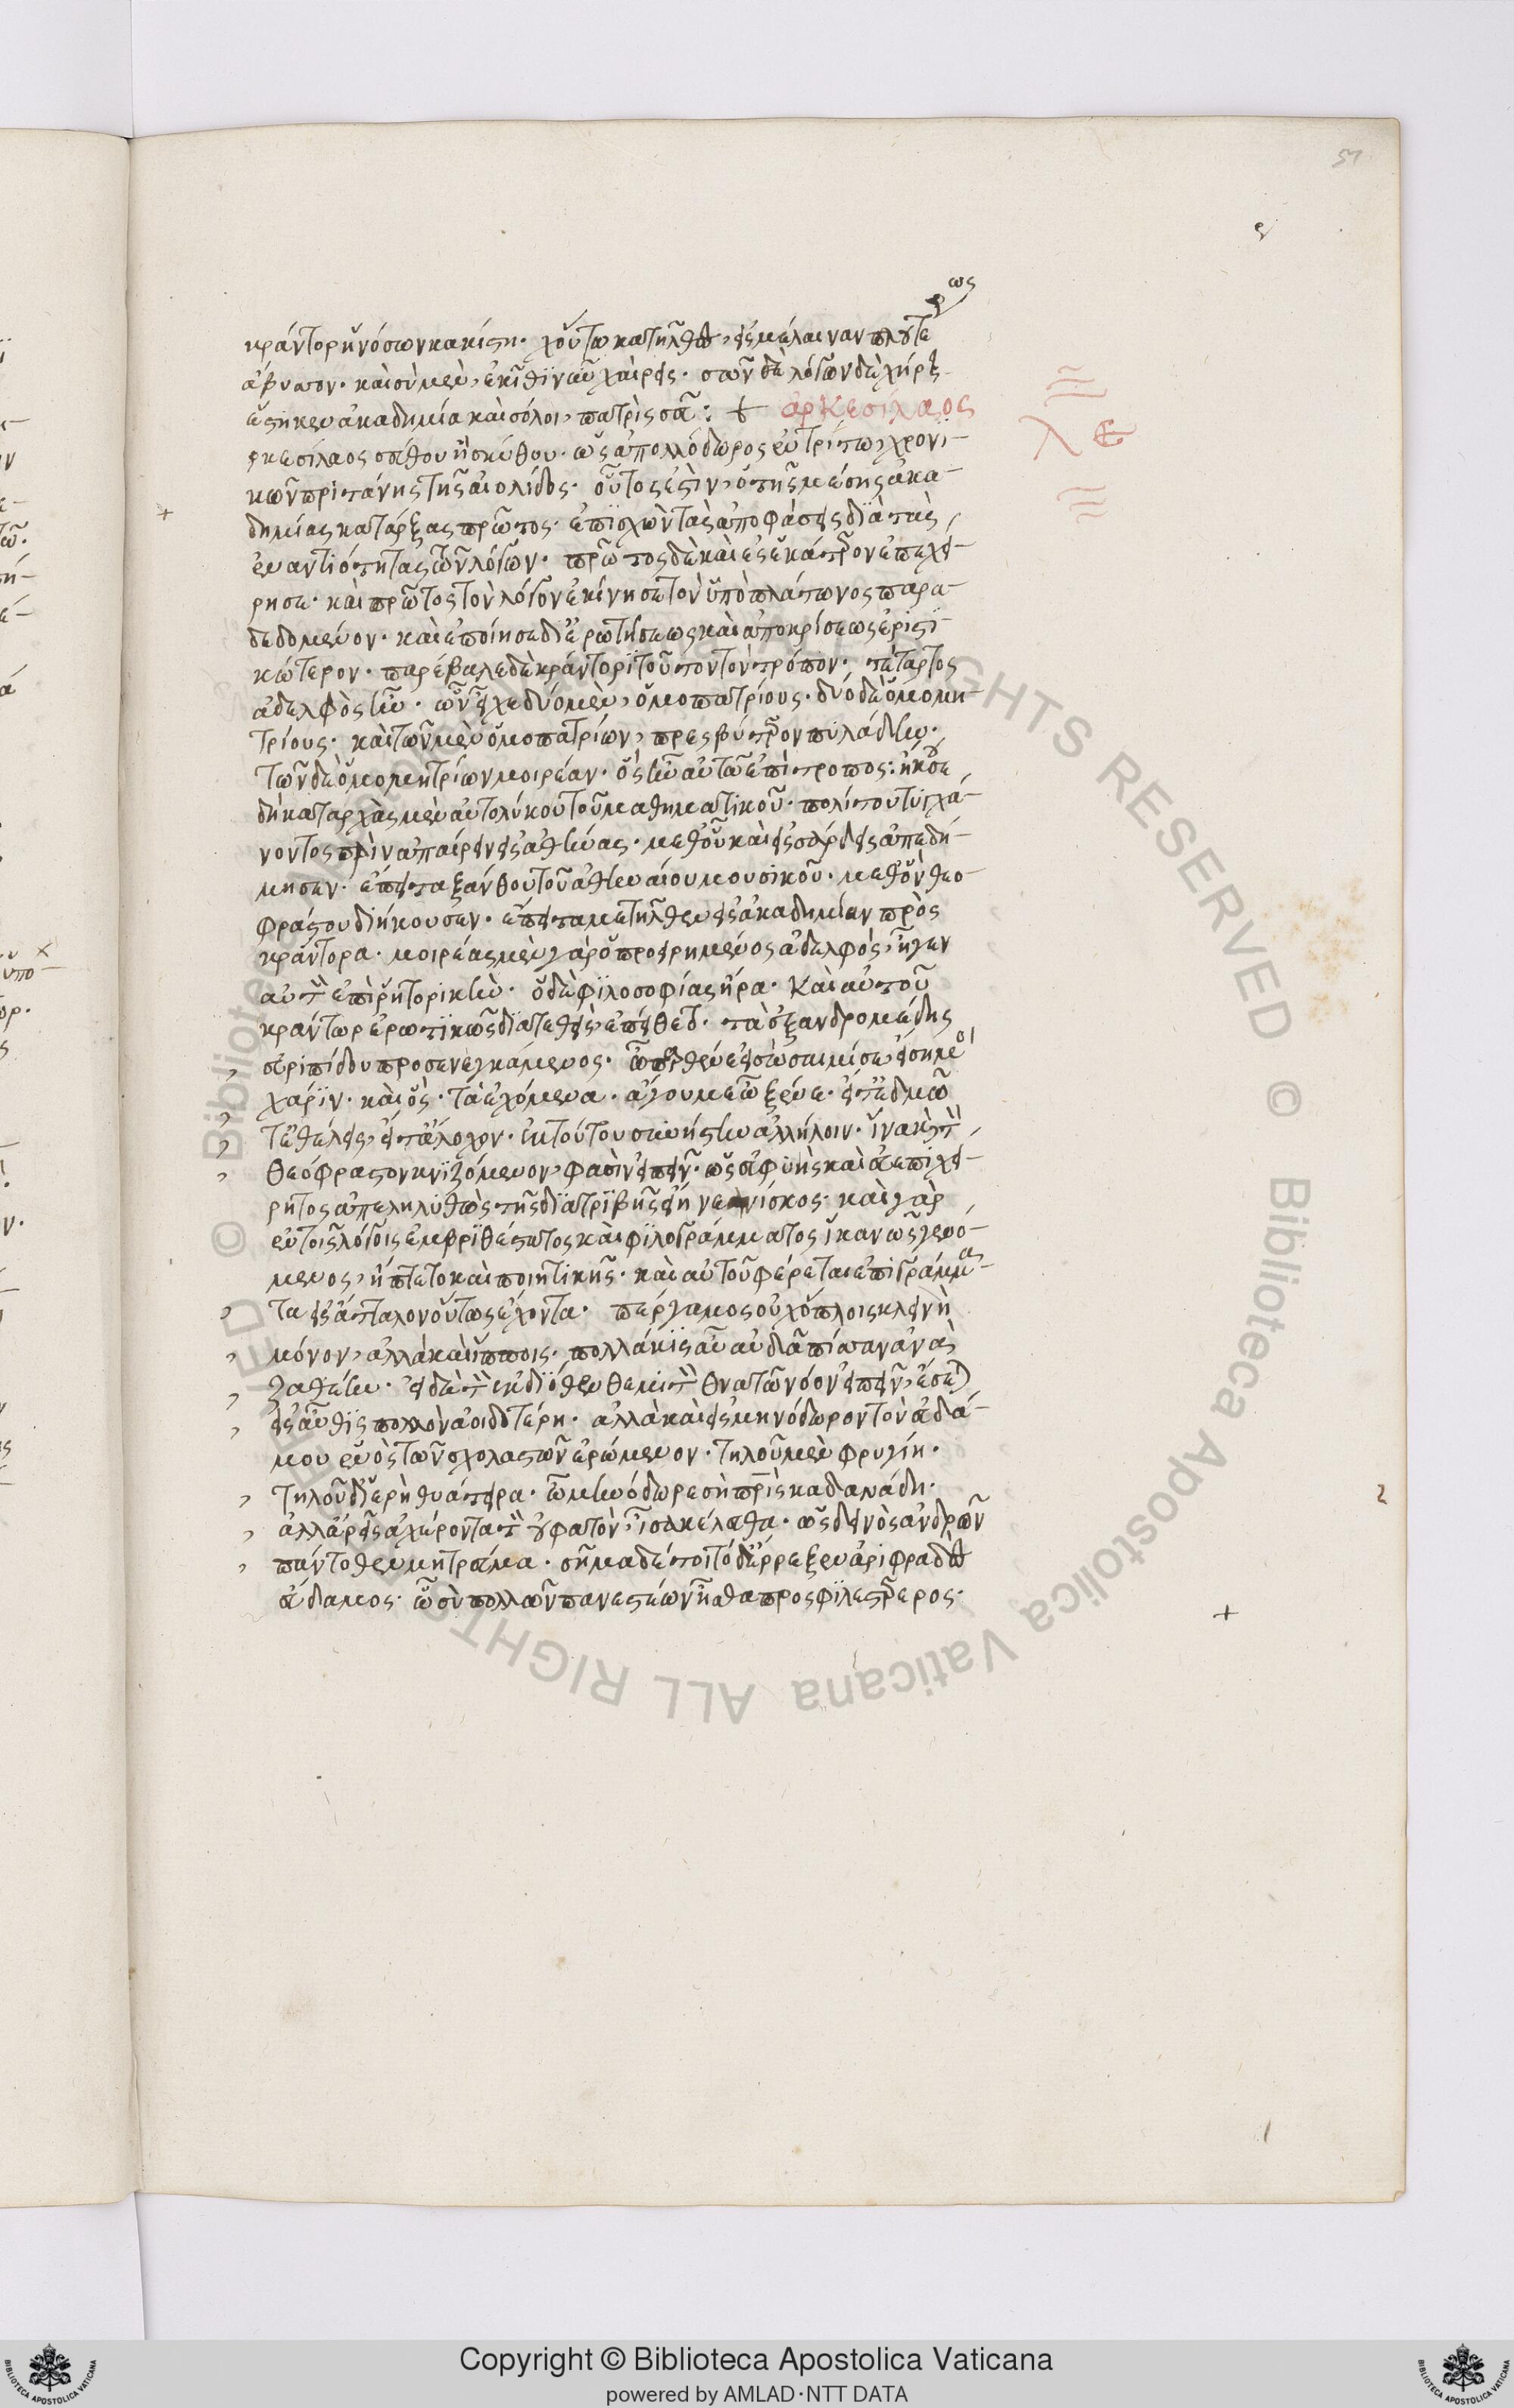 51
κράντορ ἡ νόσων κακίστη. χ' οὕτω κατῆλθες εἰς μέλαιναν πλουτέως
ἄβυσσον. καὶ σὺ μὲν ἐκεῖθι νῦν χαίρεις. σῶν δὲ λόγων δὲ χήρη
ἕστηκεν ἀκαδημία καὶ σόλοι πατρὶς σᾶ: + ἀρκεσίλαος
ρκεσίλαος σεύθου ἢ σκύθου. ὡς ἀπολλόδωρος ἐν τρίτῳ χρονι-
κῶν πριτάνης τῆς αἰολίδος. οὗτός ἐστιν ὁ τῆς μέσης ἀκα-
δημίας κατάρξας πρῶτος. ἐπισχὼν τὰς ἀποφάσεις διὰ τὰς
ἐναντιότητας τῶν λόγων. πρῶτος δὲ καὶ εἰς ἑκάτερον ἐπεχεί-
ρησε. καὶ πρῶτος τὸν λόγον ἐκίνησε τὸν ὑπὸ πλάτωνος παρα-
δεδομένον. καὶ ἐποίησε δι' ἐρωτήσεως καὶ ἀποκρίσεως ἐριστι-
κώτερον. παρέβαλε δὲ κράντορι τοῦτον τὸν τρόπον. τέταρτος
ἀδελφὸς ἦν. ὧν εἶχε δύο μὲν ὁμοπατρίους. δύο δὲ ὁμομη-
τρίους. καὶ τῶν μὲν ὁμοπατρίων πρεσβύτερον πυλάδην.
τῶν δὲ ὁμομητρίων μοιρέαν. ὃς ἦν αὐτῶ ἐπίτροπος: ἤκουσε
δὴ καταρχὰς μὲν αὐτολύκου τοῦ μαθηματικοῦ. πολίτου τυγχά-
νοντος πρὶν ἀπαίρειν εἰς ἀθήνας. μεθ' οὗ καὶ εἰς σάρδεις ἀπεδή-
μησεν. ἔπειτα ξάνθου τοῦ ἀθηναίου μουσικοῦ. μεθ' ὃν θεο-
φράστου διήκουσεν. ἔπειτα μετῆλθεν εἰς ἀκαδημίαν πρὸς
κράντορα. μοιρέας μὲν γὰρ ὁ προειρημένος ἀδελφὸς ἦγεν
αὐτὸν ἐπὶ ῥητορικήν. ὁ δὲ φιλοσοφίας ἤρα. καὶ αὐτοῦ
κράντωρ ἐρωτικῶς διατεθεὶς ἐπύθετο. τὰ ἐξ ἀνδρομέδης
εὐριπίδου προσενεγκάμενος. ὦ παρθέν' εἰ σώσαιμί σε εἴσῃ μοι
χάριν. καὶ ὃς. τὰ ἐχόμενα. ἄγου με ὦ ξένε. εἴτε δμω
τ' ἐθέλεις εἴτ' ἄλοχον. ἐκ τούτου συνήστην ἀλλήλοιν. ἵνα καὶ τὸν
θεόφραστον κνιζόμενον φασὶν εἰπεῖν. ὡς εὐφυὴς καὶ εὐεπιχεί-
ρητος ἀπεληλυθὼς τῆς διατριβῆς εἴη νεανίσκος. καὶ γὰρ
ἐν τοῖς λόγοις ἐμβριθέστατος καὶ φιλογράμματος ἱκανῶς γενό-
μενος, ἥπτετο καὶ ποιητικῆς. καὶ αὐτοῦ φέρεται ἐπιγράμμα-
τα εἰς ἄτταλον οὕτως ἔχοντα. πέργαμος οὐχ ὅπλοις κλεινὴ
μόνον, ἀλλὰ καὶ ἵπποις. πολλάκις αὐδᾶται πίσαν ἀνὰ
ζαθέην. εἰ δὲ τὸν ἐκ διόθεν θεμιτὸν θνατῶ νόον εἰπεῖν, ἔσεται
εἰσαῦθις πολλὸν ἀοιδοτέρη. ἀλλὰ καὶ εἰς μηνόδωρον τὸν εὐδά-
μου ἑνὸς τῶν σχολαστῶν ἐρώμενον. τηλοῦ μὲν φρυγίη.
τηλοῦ δ' ἱερὴ θυάτειρα. ὦ μηνόδωρε σὴ πατρὶς καδανάδη.
ἀλλὰ γὰρ εἰς ἀχέροντα τὸν οὐ φατὸν ἶσα κέλευθα. ὡς αἶνος ἀνδρῶν
πάντοθεν μητρεύμενα. σῆμα δέ τοι τόδ' ἔρρεξεν ἀριφραδὲς
εὔδαμος. ὧ σὺ πολλῶν πανεστέων ἦσθα προσφιλέστερος.